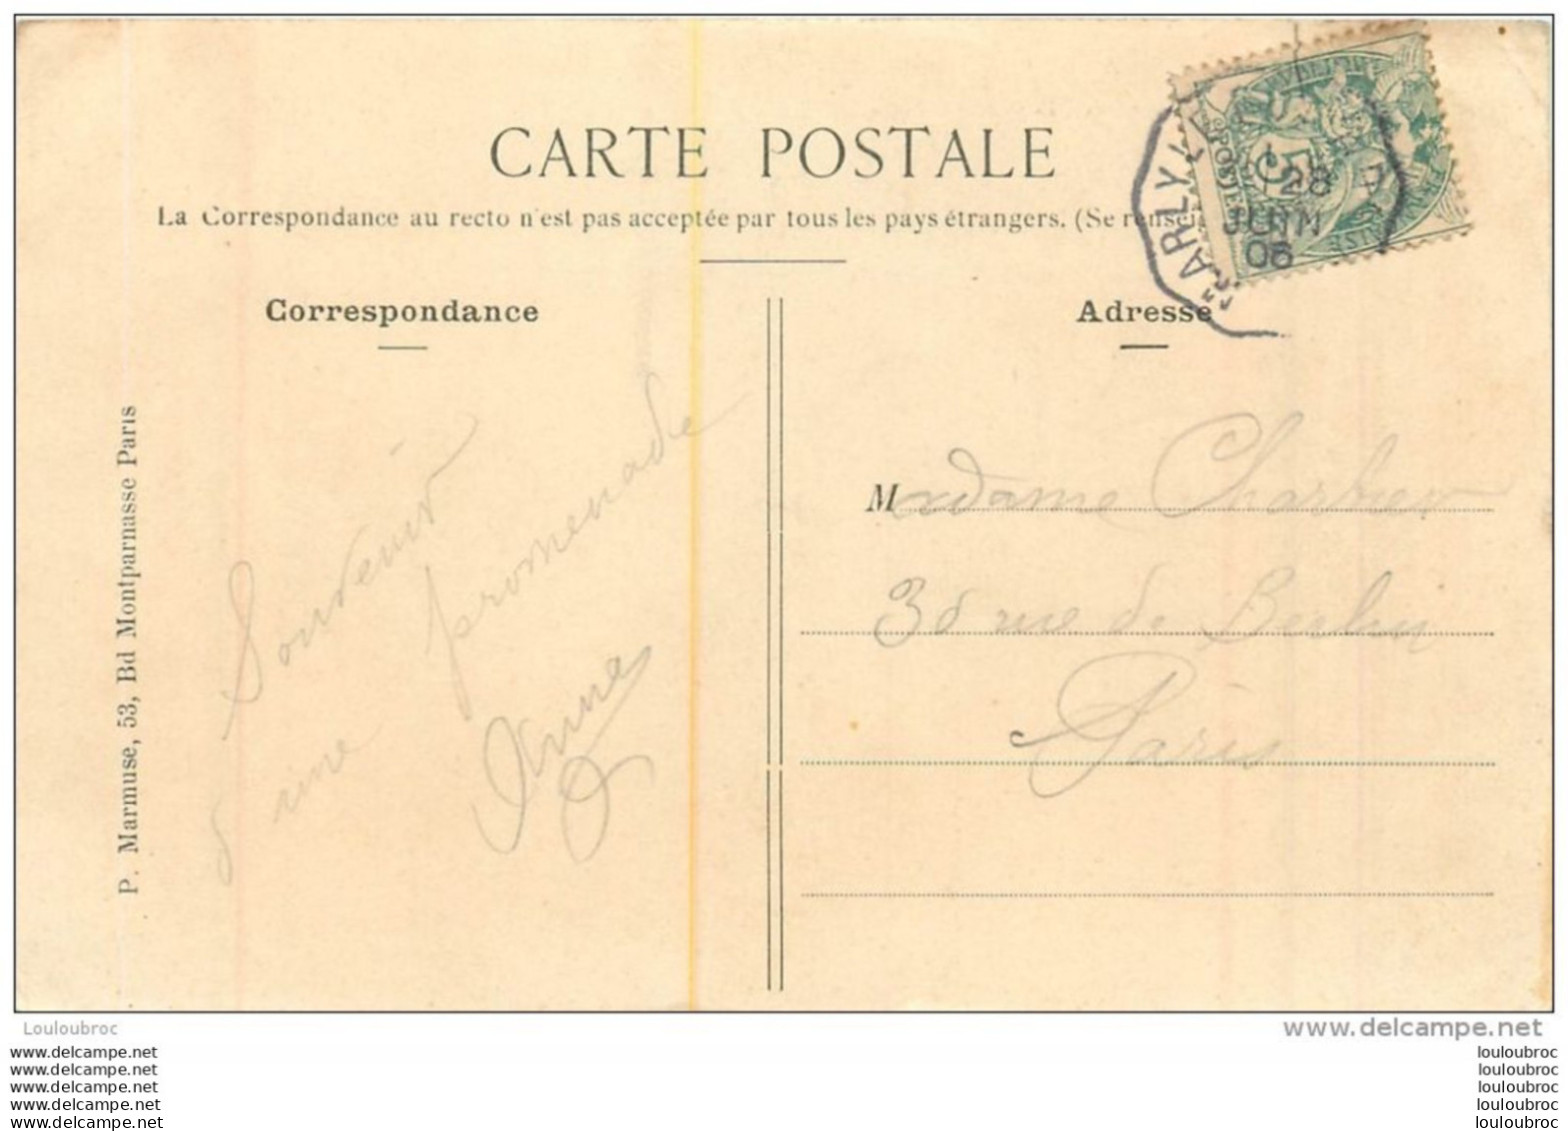 CARTE POSTALE
La Correspondance au recto n'est pas acceptée par tous les pays étrangers. (Se rensei
Correspondance
Adresse
P. Marmuse, 53, Bd Montparnasse Paris
Souvenir
d'une promenade
Anna
Madame Charbier
38 rue de Berlin
Paris
MARLY
28
JUIN
06
5
Louloubroc
www.delcampe.net
www.delcampe.net
www.delcampe.net
www.delcampe.net
www.delcampe.net
www.delcampe.net
louloubroc
louloubroc
louloubroc
louloubroc
louloubroc